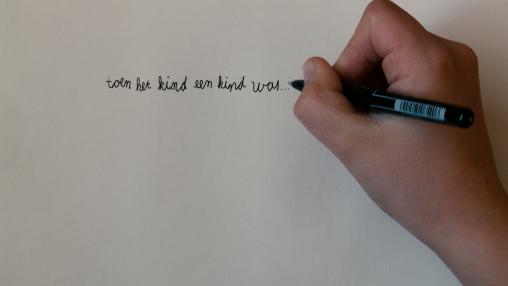 toen het kind een kind was...